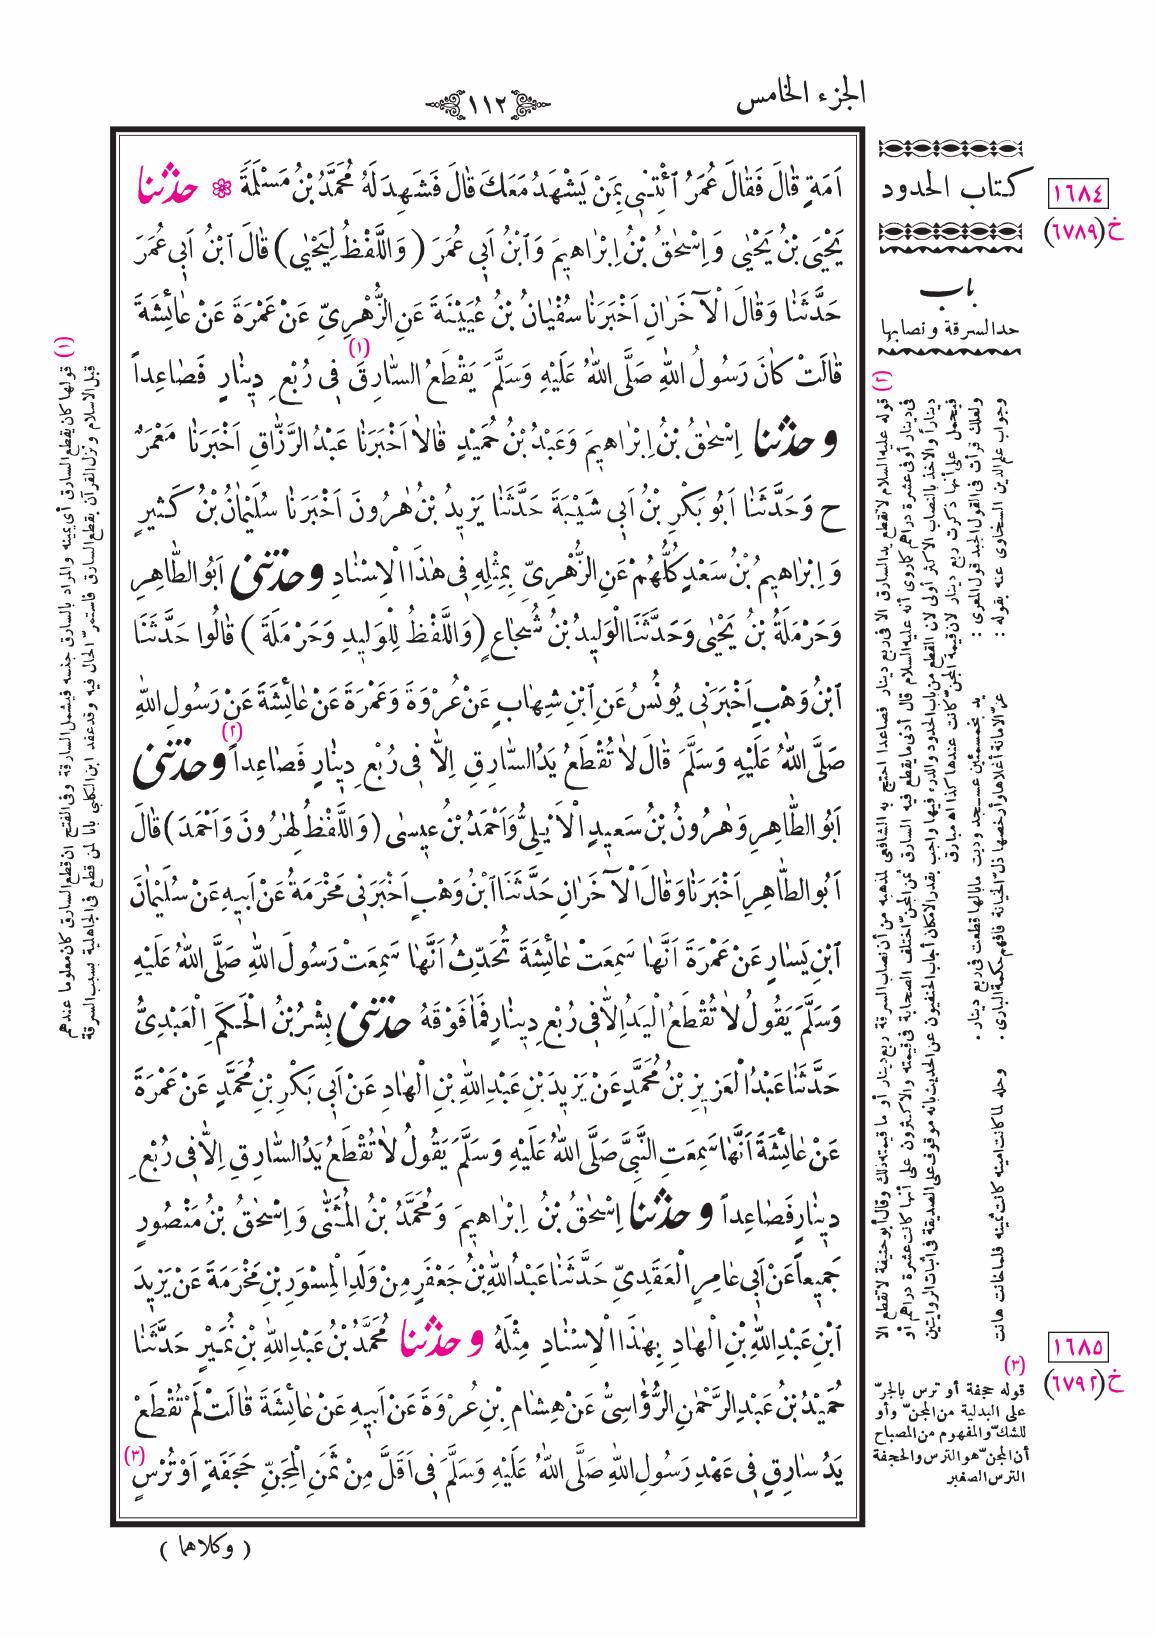 الجزء الخامس
١١٢
اَمَةٍ قَالَ فَقَالَ عُمَرُ اَئْتِنِي بِمَنْ يَشْهَدُ مَعَكَ قَالَ فَشَهِدَ لَهُ مُحَمَّدُ بْنُ مَسْلَمَةَ ۞ حدثنا
يَحْيَى بْنُ يَحْيٰى وَاِسْحٰقُ بْنُ اِبْرَاهِيمَ وَابْنُ اَبِي عُمَرَ (وَاللَّفْظُ لِيَحْيٰى) قَالَ ابْنُ اَبِي عُمَرَ
حَدَّثَنَا وَقَالَ الْآخَرَانِ اَخْبَرَنَا سُفْيَانُ بْنُ عُيَيْنَةَ عَنِ الزُّهْرِيِّ عَنْ عَمْرَةَ عَنْ عَائِشَةَ
قَالَتْ كَانَ رَسُولُ اللهِ صَلَّى اللهُ عَلَيْهِ وَسَلَّمَ يَقْطَعُ السَّارِقَ (١) فِي رُبْعِ دِينَارٍ فَصَاعِداً
وحدثنا اِسْحٰقُ بْنُ اِبْرَاهِيمَ وَعَبْدُ بْنُ حُمَيْدٍ قَالَا اَخْبَرَنَا عَبْدُ الرَّزَّاقِ اَخْبَرَنَا مَعْمَرٌ
ح وَحَدَّثَنَا اَبُو بَكْرِ بْنُ اَبِي شَيْبَةَ حَدَّثَنَا يَزِيدُ بْنُ هٰرُونَ اَخْبَرَنَا سُلَيْمَانُ بْنُ كَثِيرٍ
وَاِبْرَاهِيمُ بْنُ سَعْدٍ كُلُّهُمْ عَنِ الزُّهْرِيِّ بِمِثْلِهِ فِي هٰذَا الْاِسْنَادِ وحدثني اَبُو الطَّاهِرِ
وَحَرْمَلَةُ بْنُ يَحْيٰى وَحَدَّثَنَا الْوَلِيدُ بْنُ شُجَاعٍ (وَاللَّفْظُ لِلْوَلِيدِ وَحَرْمَلَةَ) قَالُوا حَدَّثَنَا
ابْنُ وَهْبٍ اَخْبَرَنِي يُونُسُ عَنِ ابْنِ شِهَابٍ عَنْ عُرْوَةَ وَعَمْرَةَ عَنْ عَائِشَةَ عَنْ رَسُولِ اللهِ
صَلَّى اللهُ عَلَيْهِ وَسَلَّمَ قَالَ لَا تُقْطَعُ يَدُ السَّارِقِ اِلَّا فِي رُبْعِ دِينَارٍ فَصَاعِداً (٢) وحدثني
اَبُو الطَّاهِرِ وَهٰرُونُ بْنُ سَعِيدٍ الْاَيْلِيُّ وَاَحْمَدُ بْنُ عِيسٰى (وَاللَّفْظُ لِهٰرُونَ وَاَحْمَدَ) قَالَ
اَبُو الطَّاهِرِ اَخْبَرَنَا وَقَالَ الْآخَرَانِ حَدَّثَنَا ابْنُ وَهْبٍ اَخْبَرَنِي مَخْرَمَةُ عَنْ اَبِيهِ عَنْ سُلَيْمَانَ
ابْنِ يَسَارٍ عَنْ عَمْرَةَ اَنَّهَا سَمِعَتْ عَائِشَةَ تُحَدِّثُ اَنَّهَا سَمِعَتْ رَسُولَ اللهِ صَلَّى اللهُ عَلَيْهِ
وَسَلَّمَ يَقُولُ لَا تُقْطَعُ الْيَدُ اِلَّا فِي رُبْعِ دِينَارٍ فَمَا فَوْقَهُ حدثني بِشْرُ بْنُ الْحَكَمِ الْعَبْدِيُّ
حَدَّثَنَا عَبْدُ الْعَزِيزِ بْنُ مُحَمَّدٍ عَنْ يَزِيدَ بْنِ عَبْدِ اللهِ بْنِ الْهَادِ عَنْ اَبِي بَكْرِ بْنِ مُحَمَّدٍ عَنْ عَمْرَةَ
عَنْ عَائِشَةَ اَنَّهَا سَمِعَتِ النَّبِيَّ صَلَّى اللهُ عَلَيْهِ وَسَلَّمَ يَقُولُ لَا تُقْطَعُ يَدُ السَّارِقِ اِلَّا فِي رُبْعِ
دِينَارٍ فَصَاعِداً وحدثنا اِسْحٰقُ بْنُ اِبْرَاهِيمَ وَمُحَمَّدُ بْنُ الْمُثَنّٰى وَاِسْحٰقُ بْنُ مَنْصُورٍ
جَمِيعاً عَنْ اَبِي عَامِرٍ الْعَقَدِيِّ حَدَّثَنَا عَبْدُ اللهِ بْنُ جَعْفَرٍ مِنْ وَلَدِ الْمِسْوَرِ بْنِ مَخْرَمَةَ عَنْ يَزِيدَ
ابْنِ عَبْدِ اللهِ بْنِ الْهَادِ بِهٰذَا الْاِسْنَادِ مِثْلَهُ وحدثنا مُحَمَّدُ بْنُ عَبْدِ اللهِ بْنِ نُمَيْرٍ حَدَّثَنَا
حُمَيْدُ بْنُ عَبْدِ الرَّحْمٰنِ الرُّؤَاسِيُّ عَنْ هِشَامِ بْنِ عُرْوَةَ عَنْ اَبِيهِ عَنْ عَائِشَةَ قَالَتْ لَمْ تُقْطَعْ
يَدُ سَارِقٍ فِي عَهْدِ رَسُولِ اللهِ صَلَّى اللهُ عَلَيْهِ وَسَلَّمَ فِي اَقَلَّ مِنْ ثَمَنِ الْمِجَنِّ حَجَفَةٍ اَوْ تُرْسٍ (٣)
( وكلاهما )
كتاب الحدود
١٦٨٤
خ (٦٧٨٩)
باب
حد السرقة ونصابها
(٢) قوله عليه السلام لا تقطع يد السارق الا في ربع دينار فصاعدا احتج به الشافعي لمذهبه من أن نصاب السرقة ربع دينار أو ما قيمته ذلك وقال أبو حنيفة لا تقطع الا
في دينار أو في عشرة دراهم كما روى أنه عليه السلام قال أدنى ما يقطع فيه السارق ثمن المجنّ اختلف الصحابة في قيمته والاكثرون على أنها كانت عشرة دراهم أو
ديناراً والاخذ بالنصاب الاكثر أولى لان القطع من باب الحدود والدرء فيها واجب بقدر الامكان أجاب الحنفيون عن الحديث بأنه موقوف على الصديقة في أثبات الروايتين
فيحتمل على أنها ذكرت ربع دينار لان قيمة المجنّ كانت عندها كذا اه مبارق
ولعلك قرأت في القول الجيد قول المعرى : يد بخمس مئين عسجد وديت ما بالها قطعت في ربع دينار .
وجواب علم الدين السخاوى عنه بقوله : عزّ الامانة أغلاها وأرخصها ذلّ الخيانة فافهم حكمة البارى . وحله لما كانت امينة كانت ثمينة فلما خانت هانت
١٦٨٥
خ (٦٧٩٢)
(٣)
قوله حجفة أو ترس بالجرّ
على البدلية من المجنّ وأو
للشكّ والمفهوم من المصباح
أن المجنّ هو الترس والحجفة
الترس الصغير
(١) قولها كان يقطع السارق أى يمينه والمراد بالسارق جنسه فيشمل السارقة وفى الفتح ان قطع السارق كان معلوما عندهم
قبل الاسلام ونزل القرآن بقطع السارق فاستمرّ الحال فيه وقد عقد ابن الكلبي بابا لمن قطع فى الجاهلية بسبب السرقة